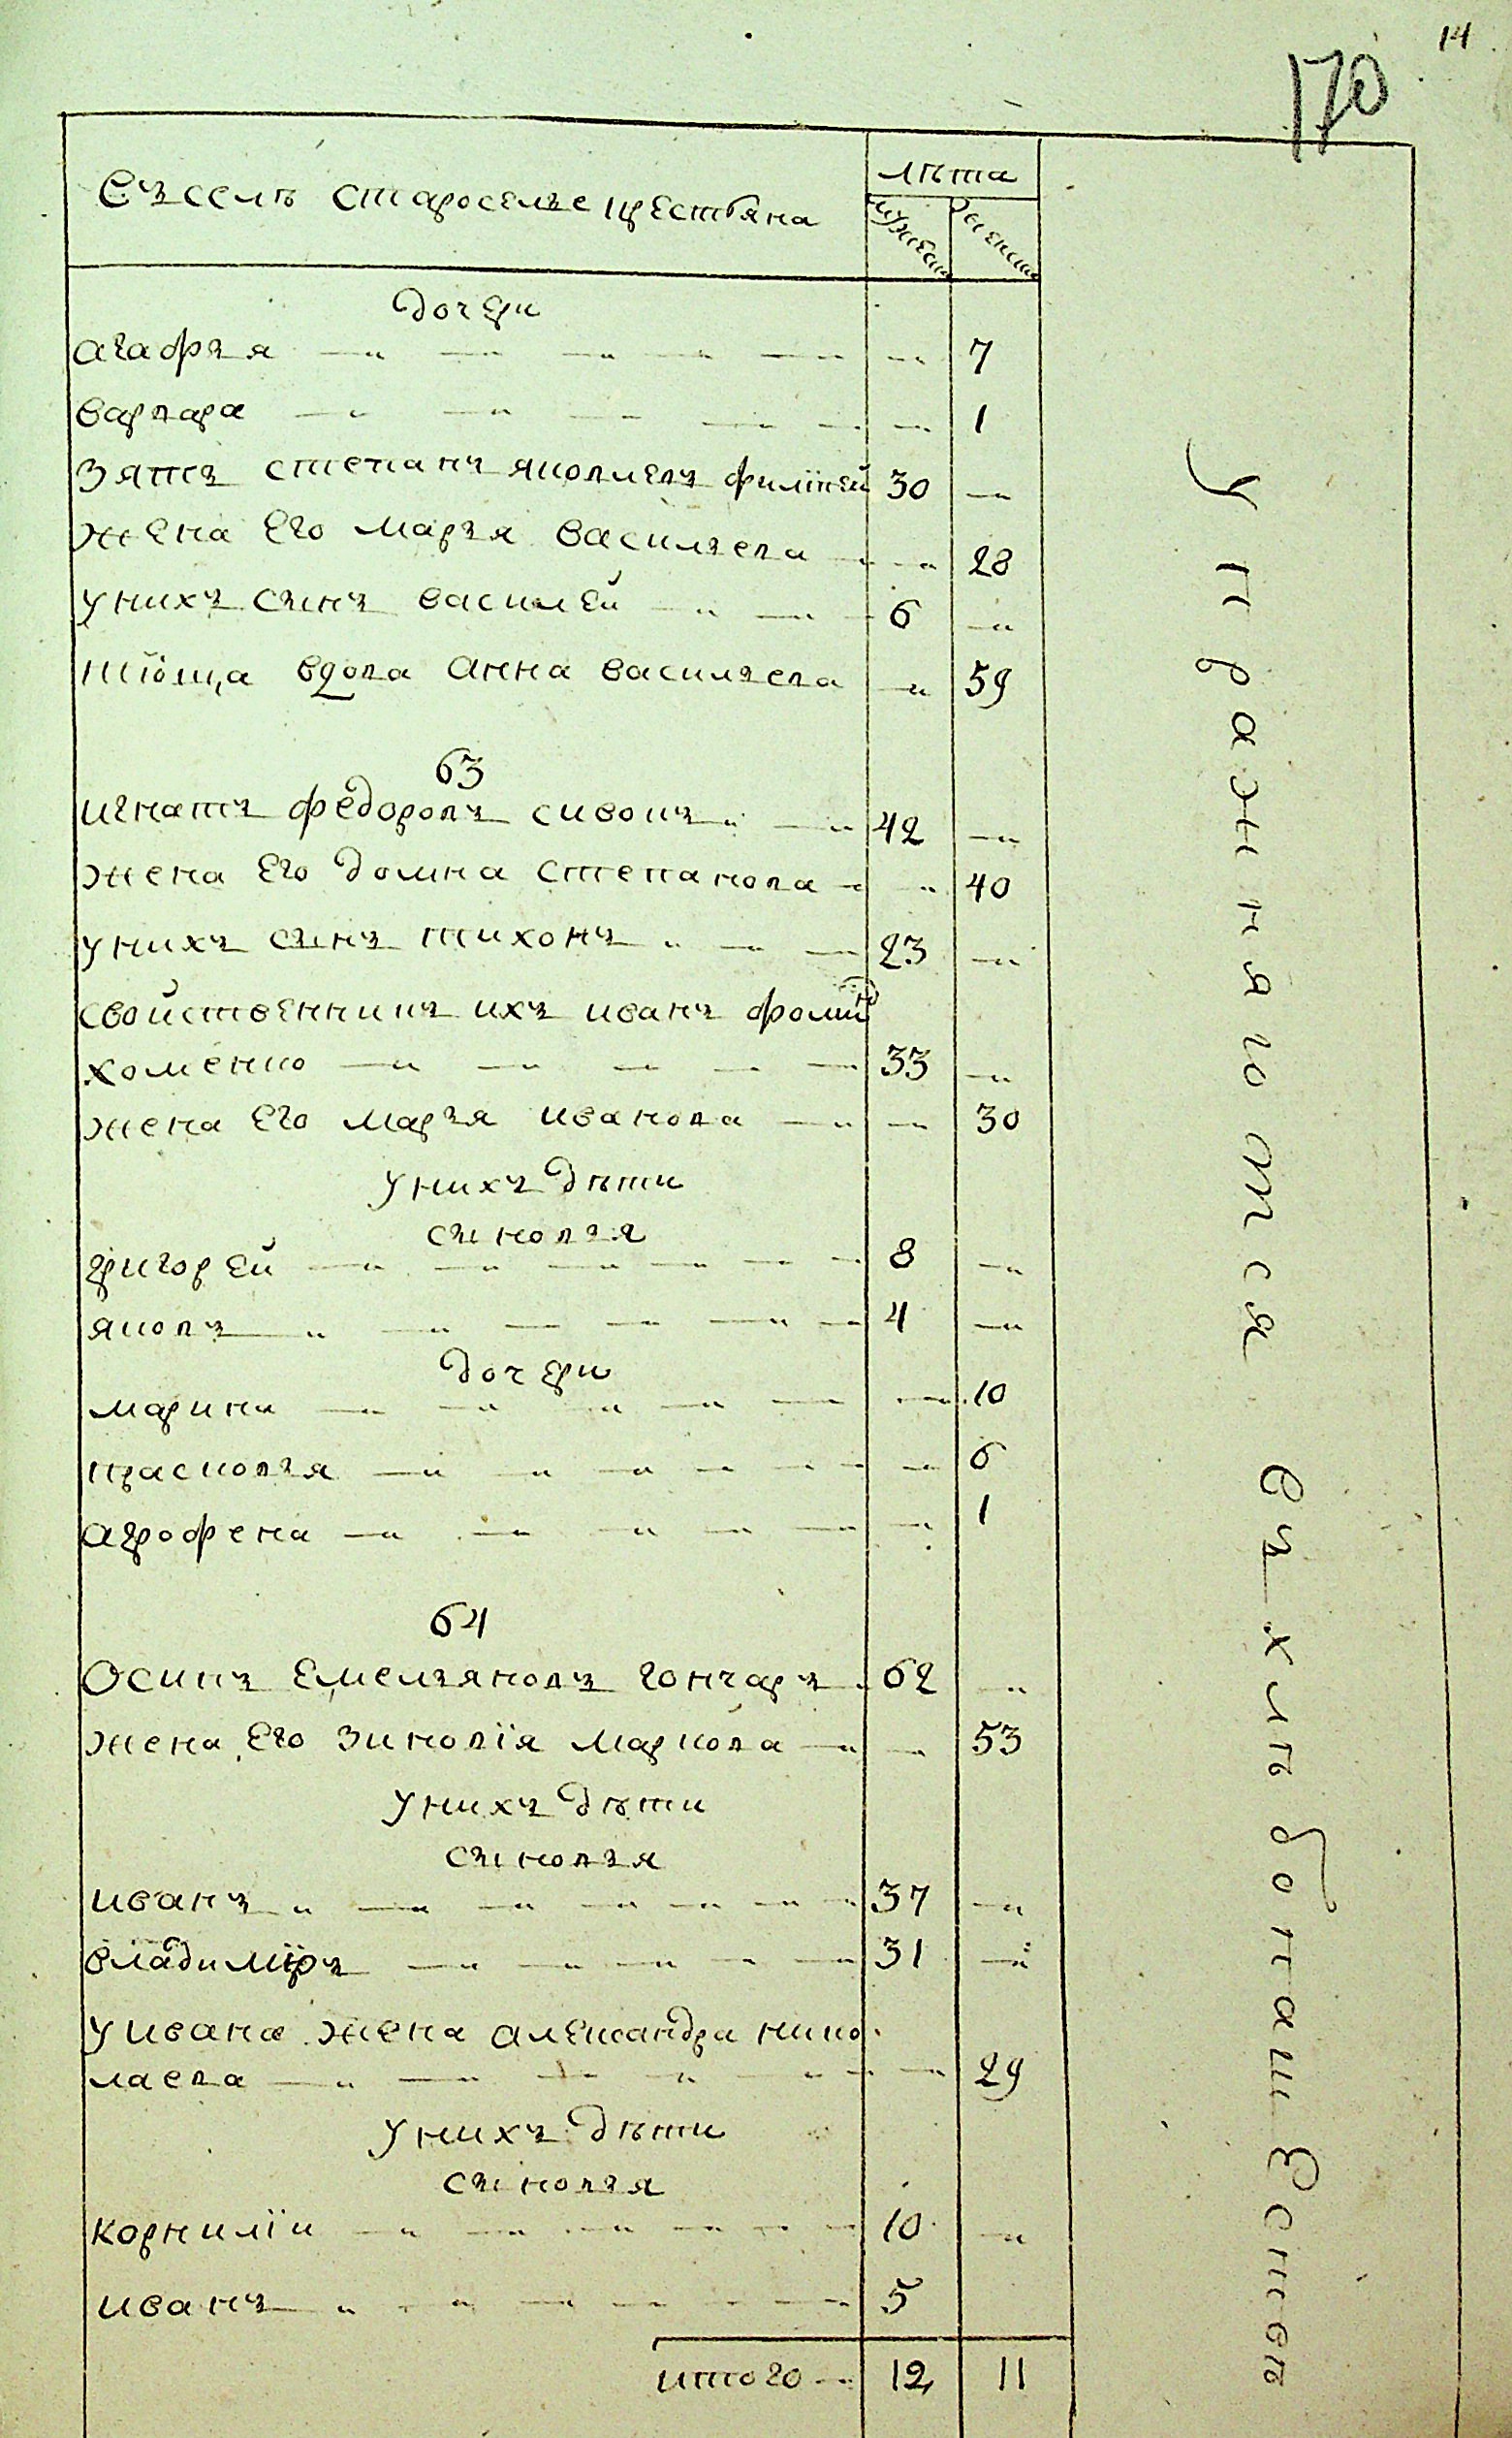 14
170
Въ селѣ староселье крестьяна
лѣта
мужеск
женски
дочери
агафъя — — — — — — 7
варвара — — — — — — 1
зять степанъ яковлевъ филіней 30 —
жена Его маръя васильева — — 28
унихъ сынъ василей — — 6 —
тіоща вдова анна васильева — 59
63
игнатъ федоровъ сивокъ — 42 —
жена Его домна степанова — — 40
унихъ сынъ тихонъ — — 23 —
свойственникъ ихъ иванъ фомин
хоменко — — — — — 33 —
жена Его маръя иванова — — 30
унихъ дѣти
сыновъя
григорей — — — — — — 8 —
яковъ — — — — — — 4 —
дочери
марина — — — — — — 10
прасковъя — — — — — — 6
агрофена — — — — — — 1
64
Осипъ Емельяновъ гончаръ 62 —
жена Его зиновія маркова — — 53
унихъ дѣти
сыновъя
иванъ — — — — — — 37 —
владиміръ — — — — — 31 —
уивана жена александра нико
лаева — — — — — — 29
унихъ дѣти
сыновъя
корнилій — — — — — — 10 —
иванъ — — — — — — 5
итого — 12 11
Упражняются въ хлѣбопашествѣ